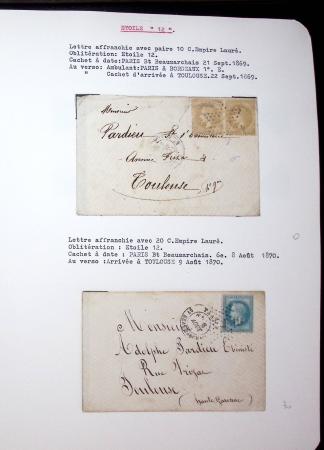 ETOILE " 12 ".
Lettre affranchie avec paire 10 C.Empire Lauré.
Oblitération: Etoile 12.
Cachet à date:PARIS Bt Beaumarchais 21 Sept.1869.
Au verso: Ambulant:PARIS à BORDEAUX 1°. B.
" Cachet d'arrivée à TOULOUSE.22 Sept.1869.
Monsieur
Pardieu
Avenue
à
Toulouse
Lettre affranchie avec 20 C.Empire Lauré.
Oblitération : Etoile 12.
Cachet à date : PARIS Bt Beaumarchais. 6e. 8 Août 1870.
Au verso :Arrivée à TOULOUSE 9 Août 1870.
Monsieur
Adolphe Pardieu
Rue
Toulouse
(Haute Garonne)